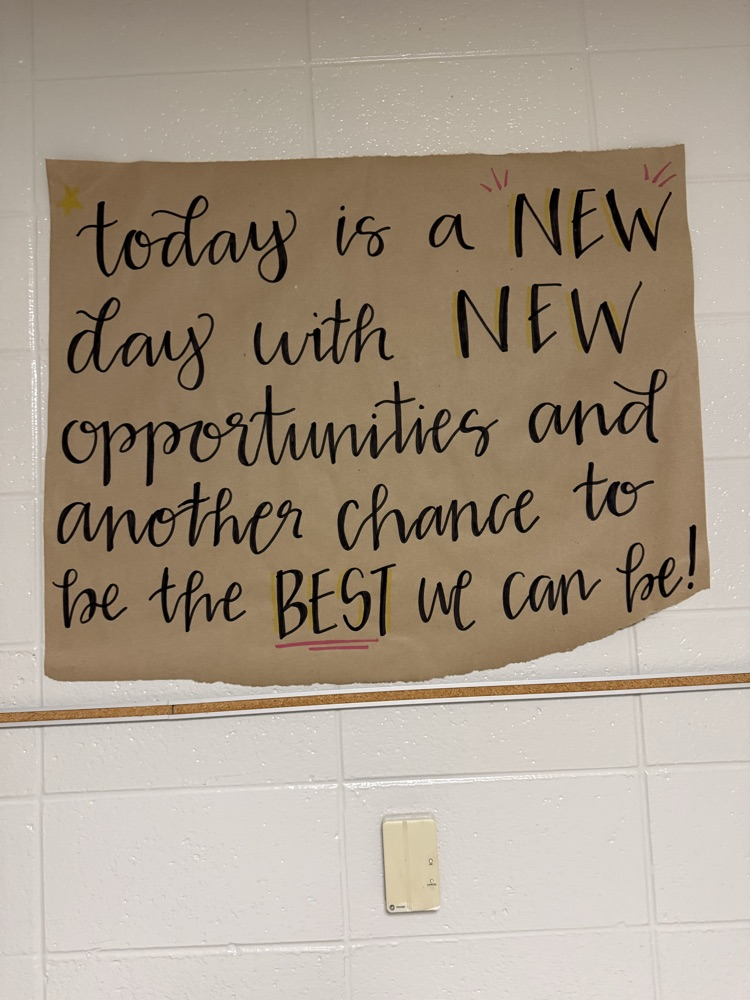 today is a NEW
day with NEW
opportunities and
another chance to
be the BEST we can be!